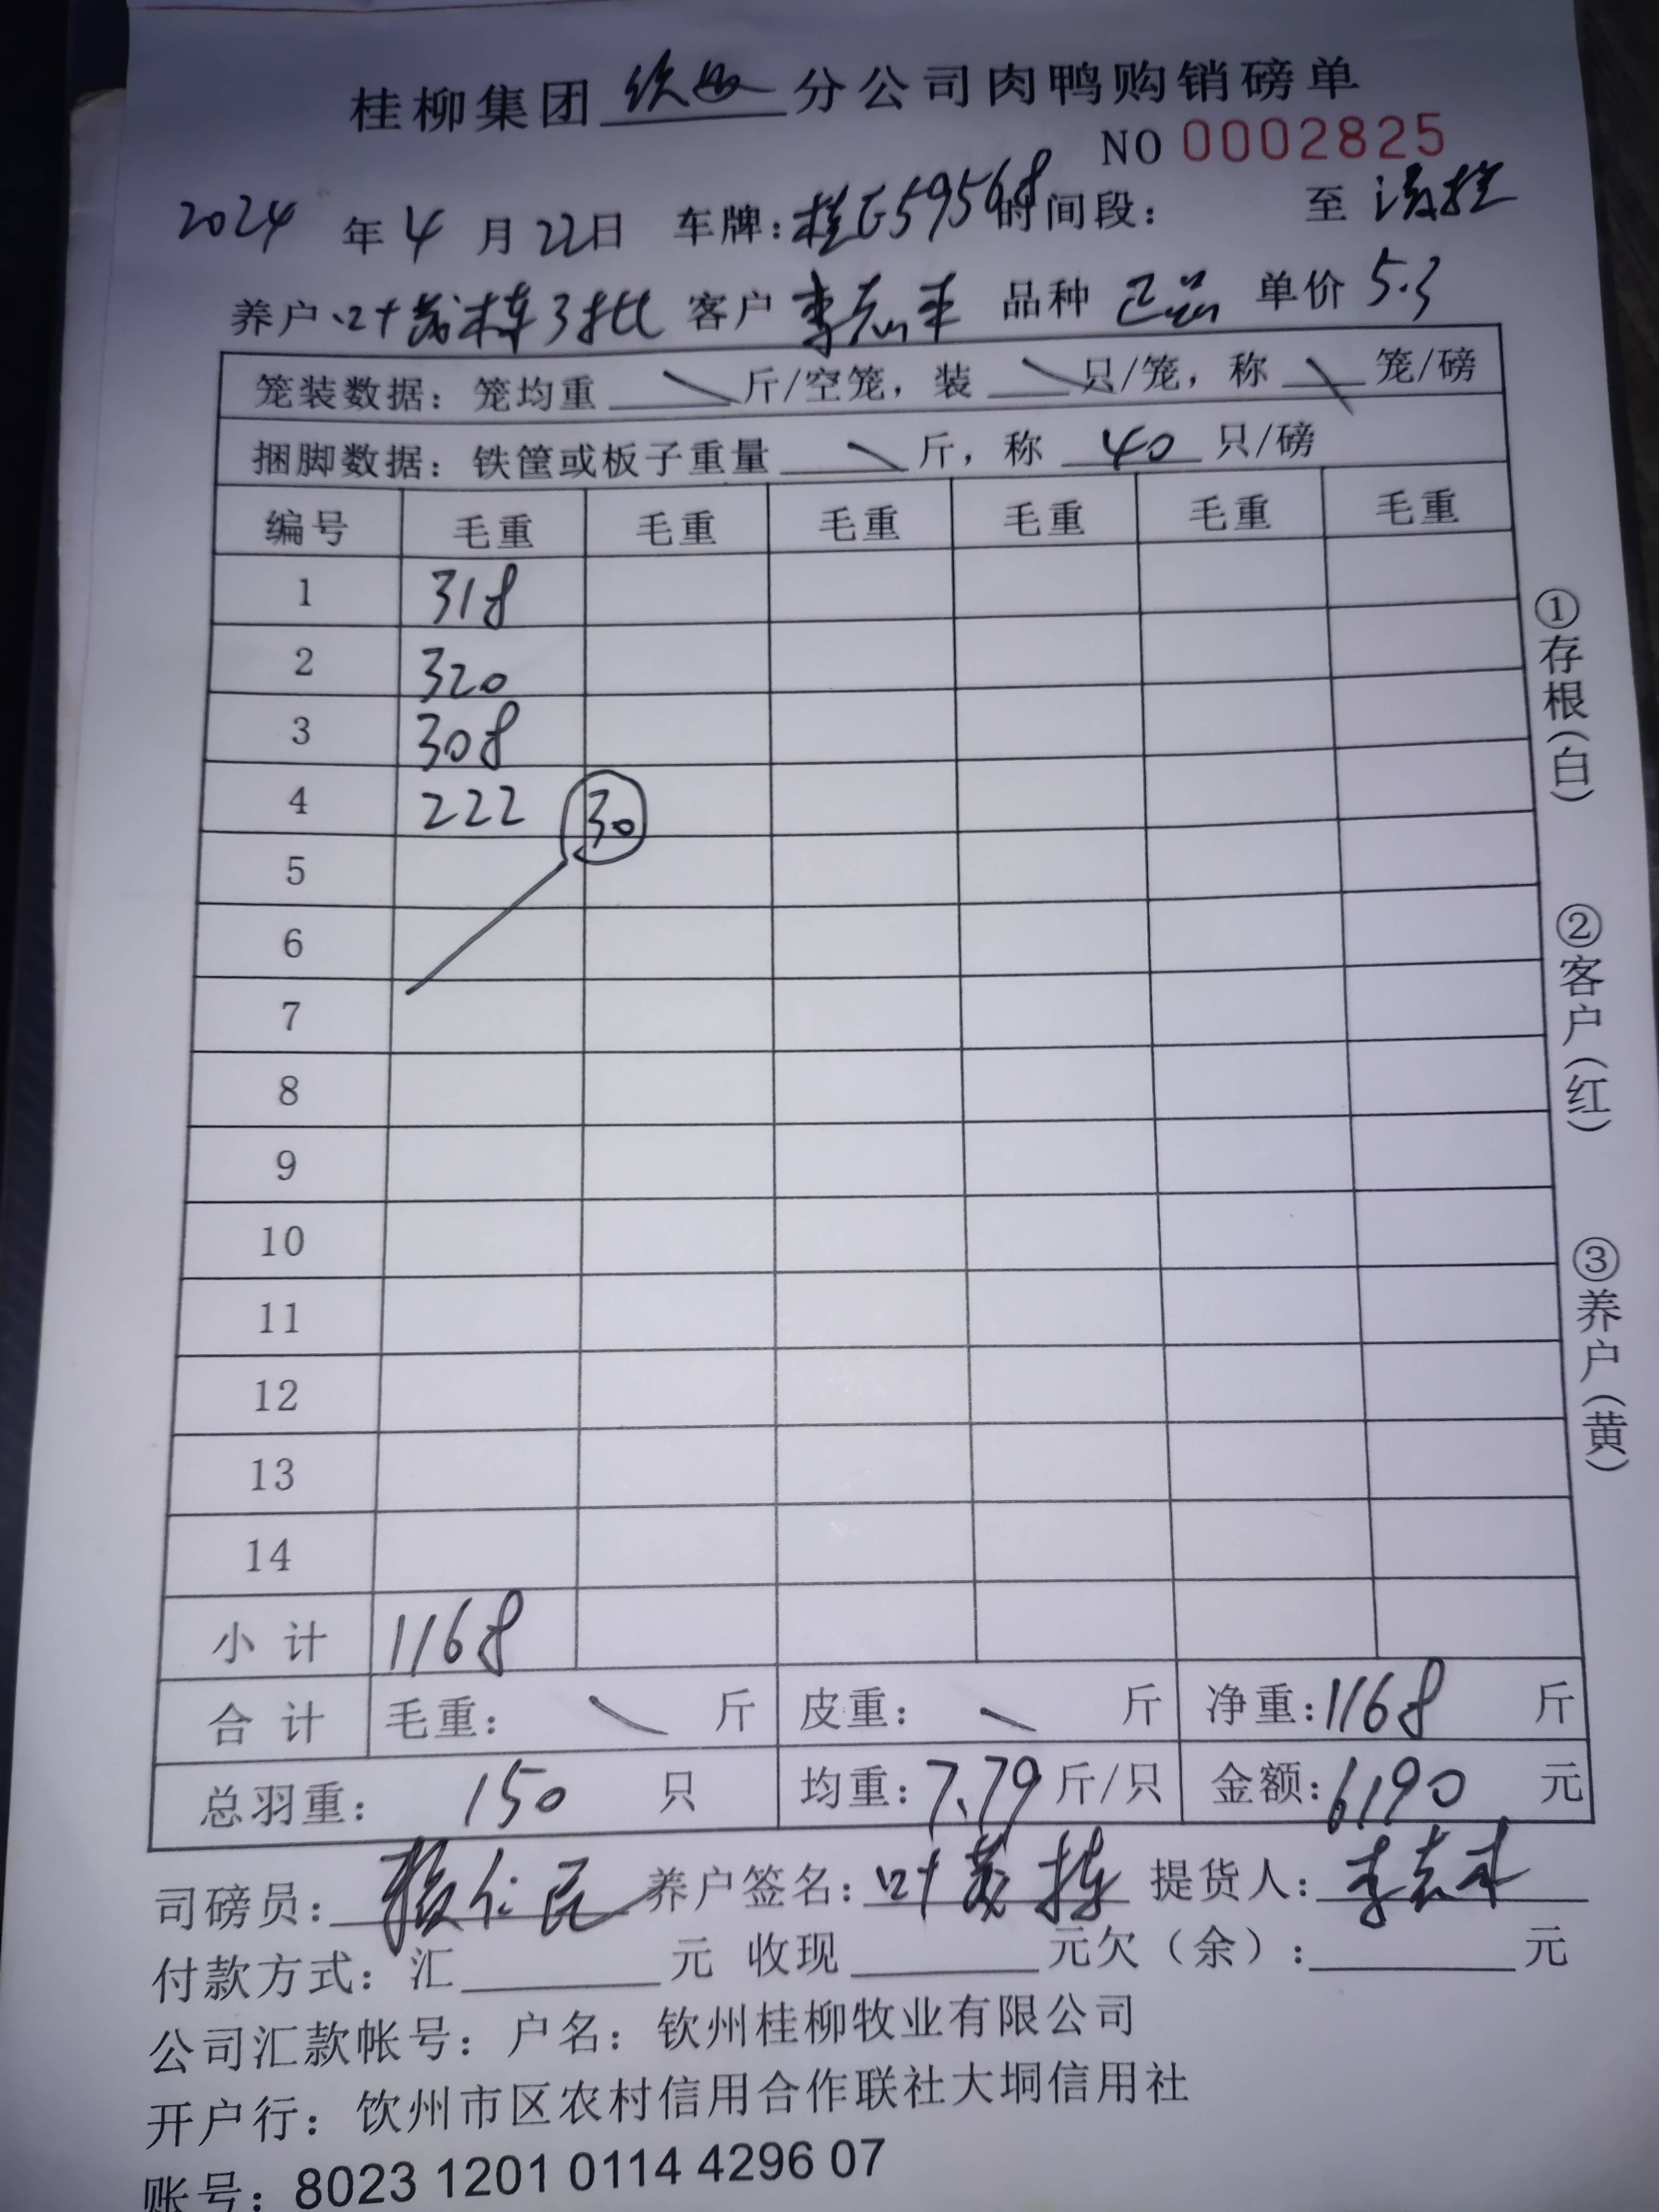 桂柳集团 钦州 分公司肉鸭购销磅单
NO 0002825
2024 年 4 月 22日 车牌: 桂E59568 时间段: 至
养户 叶茂栋3批 客户 李志平 品种 正品 单价 5.3
笼装数据: 笼均重 \ 斤/空笼, 装 \ 只/笼, 称 \ 笼/磅
捆脚数据: 铁筐或板子重量 \ 斤, 称 40 只/磅
编号 毛重 毛重 毛重 毛重 毛重 毛重
1 318
2 320
3 308
4 222 30
5
6
7
8
9
10
11
12
13
14
小计 1168
合计 毛重: \ 斤 皮重: \ 斤 净重: 1168 斤
总羽重: 150 只 均重: 7.79 斤/只 金额: 6190 元
司磅员: 养户签名: 叶茂栋 提货人: 李志平
付款方式: 汇 元 收现 元欠(余): 元
公司汇款帐号: 户名: 钦州桂柳牧业有限公司
开户行: 钦州市区农村信用合作联社大垌信用社
账号: 8023 1201 0114 4296 07
①存根(白)
②客户(红)
③养户(黄)